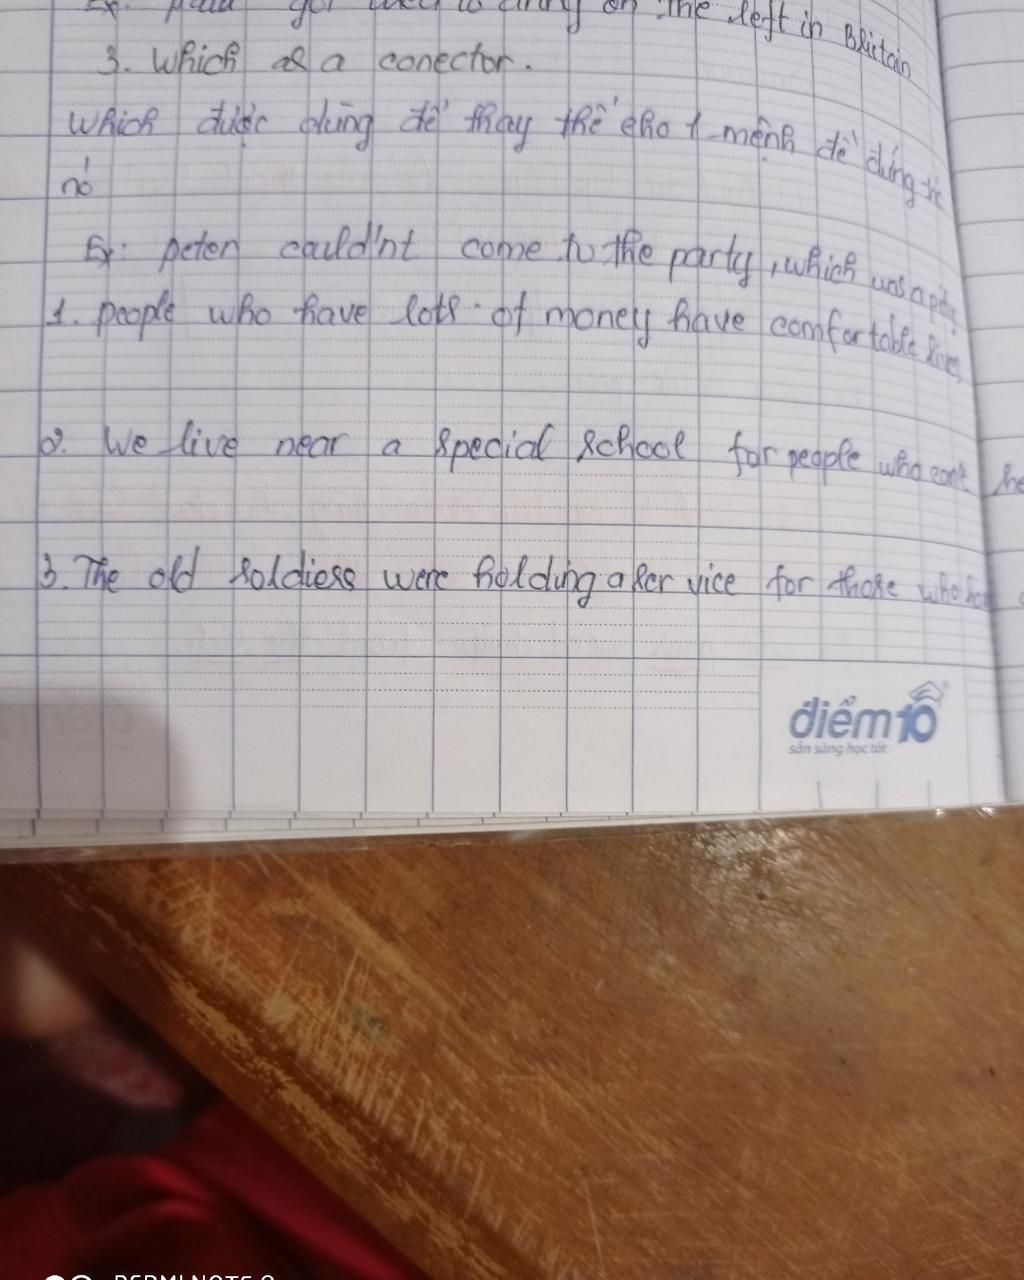 on the left in Britain
3. Which as a conector.
Which được dùng để thay thế cho 1 mệnh đề đứng
nó
Ex: Peter could'nt come to the party, which was a pity
1. People who have lots of money have comfortable lives
2. We live near a special school for people who can't he
3. The old soldiers were holding a service for those who
điểm 10
sẵn sàng học tốt
REDMI NOTE 8